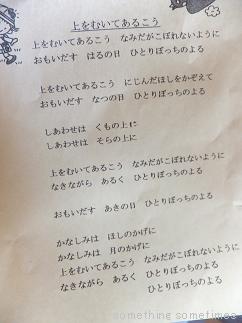 上をむいてあるこう
上をむいてあるこう　なみだがこぼれないように
おもいだす　はるの日　ひとりぼっちのよる
上をむいてあるこう　にじんだほしをかぞえて
おもいだす　なつの日　ひとりぼっちのよる
しあわせは　くもの上に
しあわせは　そらの上に
上をむいてあるこう　なみだがこぼれないように
なきながら　あるく　ひとりぼっちのよる
おもいだす　あきの日　ひとりぼっちのよる
かなしみは　ほしのかげに
かなしみは　月のかげに
上をむいてあるこう　なみだがこぼれないように
なきながら　あるく　ひとりぼっちのよる
ひとりぼっちのよる
something sometimes